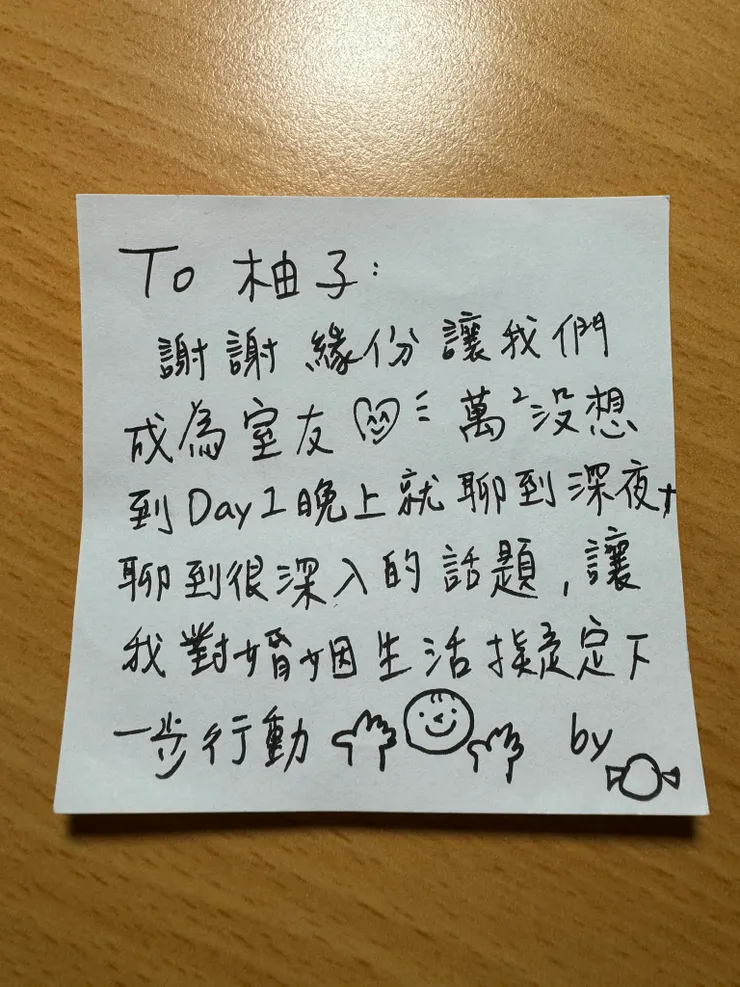 To 柚子：
謝謝緣份讓我們
成為室友 萬²没想
到Day1晚上就聊到深夜+
聊到很深入的話題，讓
我對婚姻生活擬定下
一步行動 by